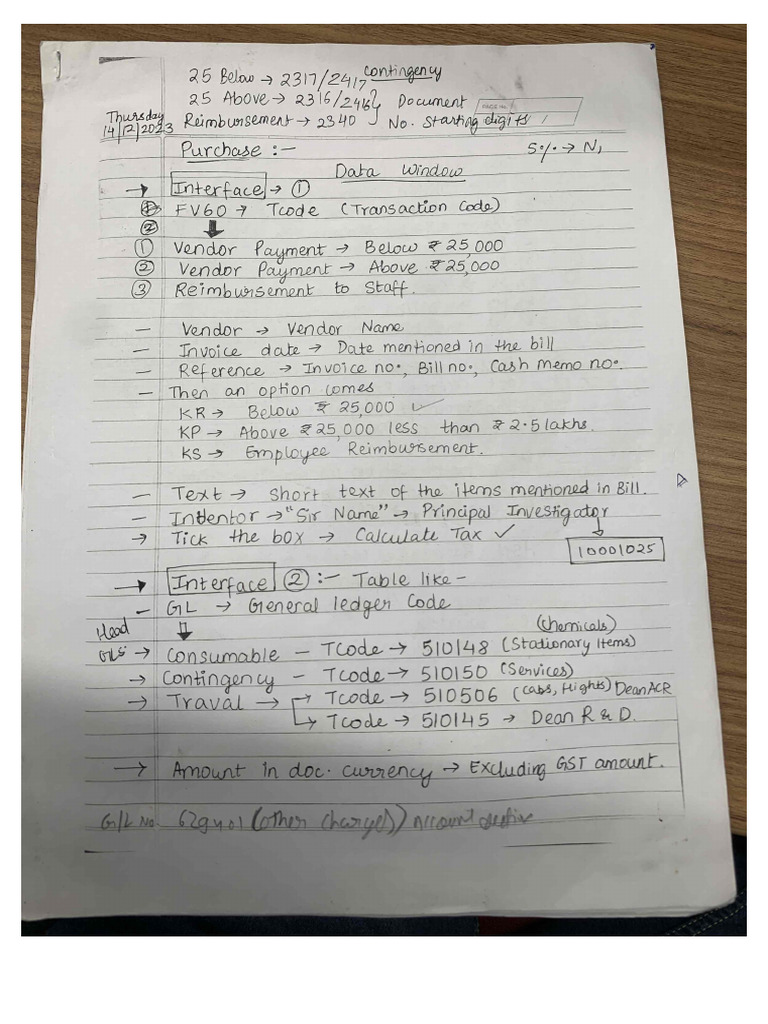 25 Below → 2317/2417 Contingency
25 Above → 2316/2416 } Document
PAGE No.
Thursday
14/12/2023 Reimbursement → 2340 No. Starting digits
Purchase :— 5% → N,
Data Window
→ Interface → ①
FV60 → Tcode (Transaction Code)
②
① Vendor Payment → Below ₹ 25,000
② Vendor Payment → Above ₹ 25,000
③ Reimbursement to Staff.
— Vendor → Vendor Name
— Invoice date → Date mentioned in the bill
— Reference → Invoice no., Bill no., Cash memo no.
— Then an option comes
KR → Below ₹ 25,000 ✓
KP → Above ₹ 25,000 less than ₹ 2.5 lakhs.
KS → Employee Reimbursement.
— Text → Short text of the items mentioned in Bill.
— Indentor → "Sir Name" → Principal Investigator
→ Tick the box → Calculate Tax ✓ 10001025
→ Interface ② :— Table like —
— GL → General ledger Code
Head (Chemicals)
GLS → Consumable — TCode → 510148 (Stationary Items)
→ Contingency — TCode → 510150 (Services)
→ Traval → TCode → 510506 (Cabs, flights) Dean ACR
↳ TCode → 510145 → Dean R & D.
→ Amount in doc. currency → Excluding GST amount.
G/L No. (other charges)) Account